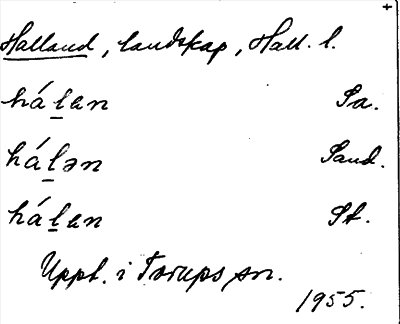 Halland, landskap, Hall. l.
há̱lan Sa.
há̱lən Sand.
há̱lan St.
Uppt. i Torups sn.
1955.